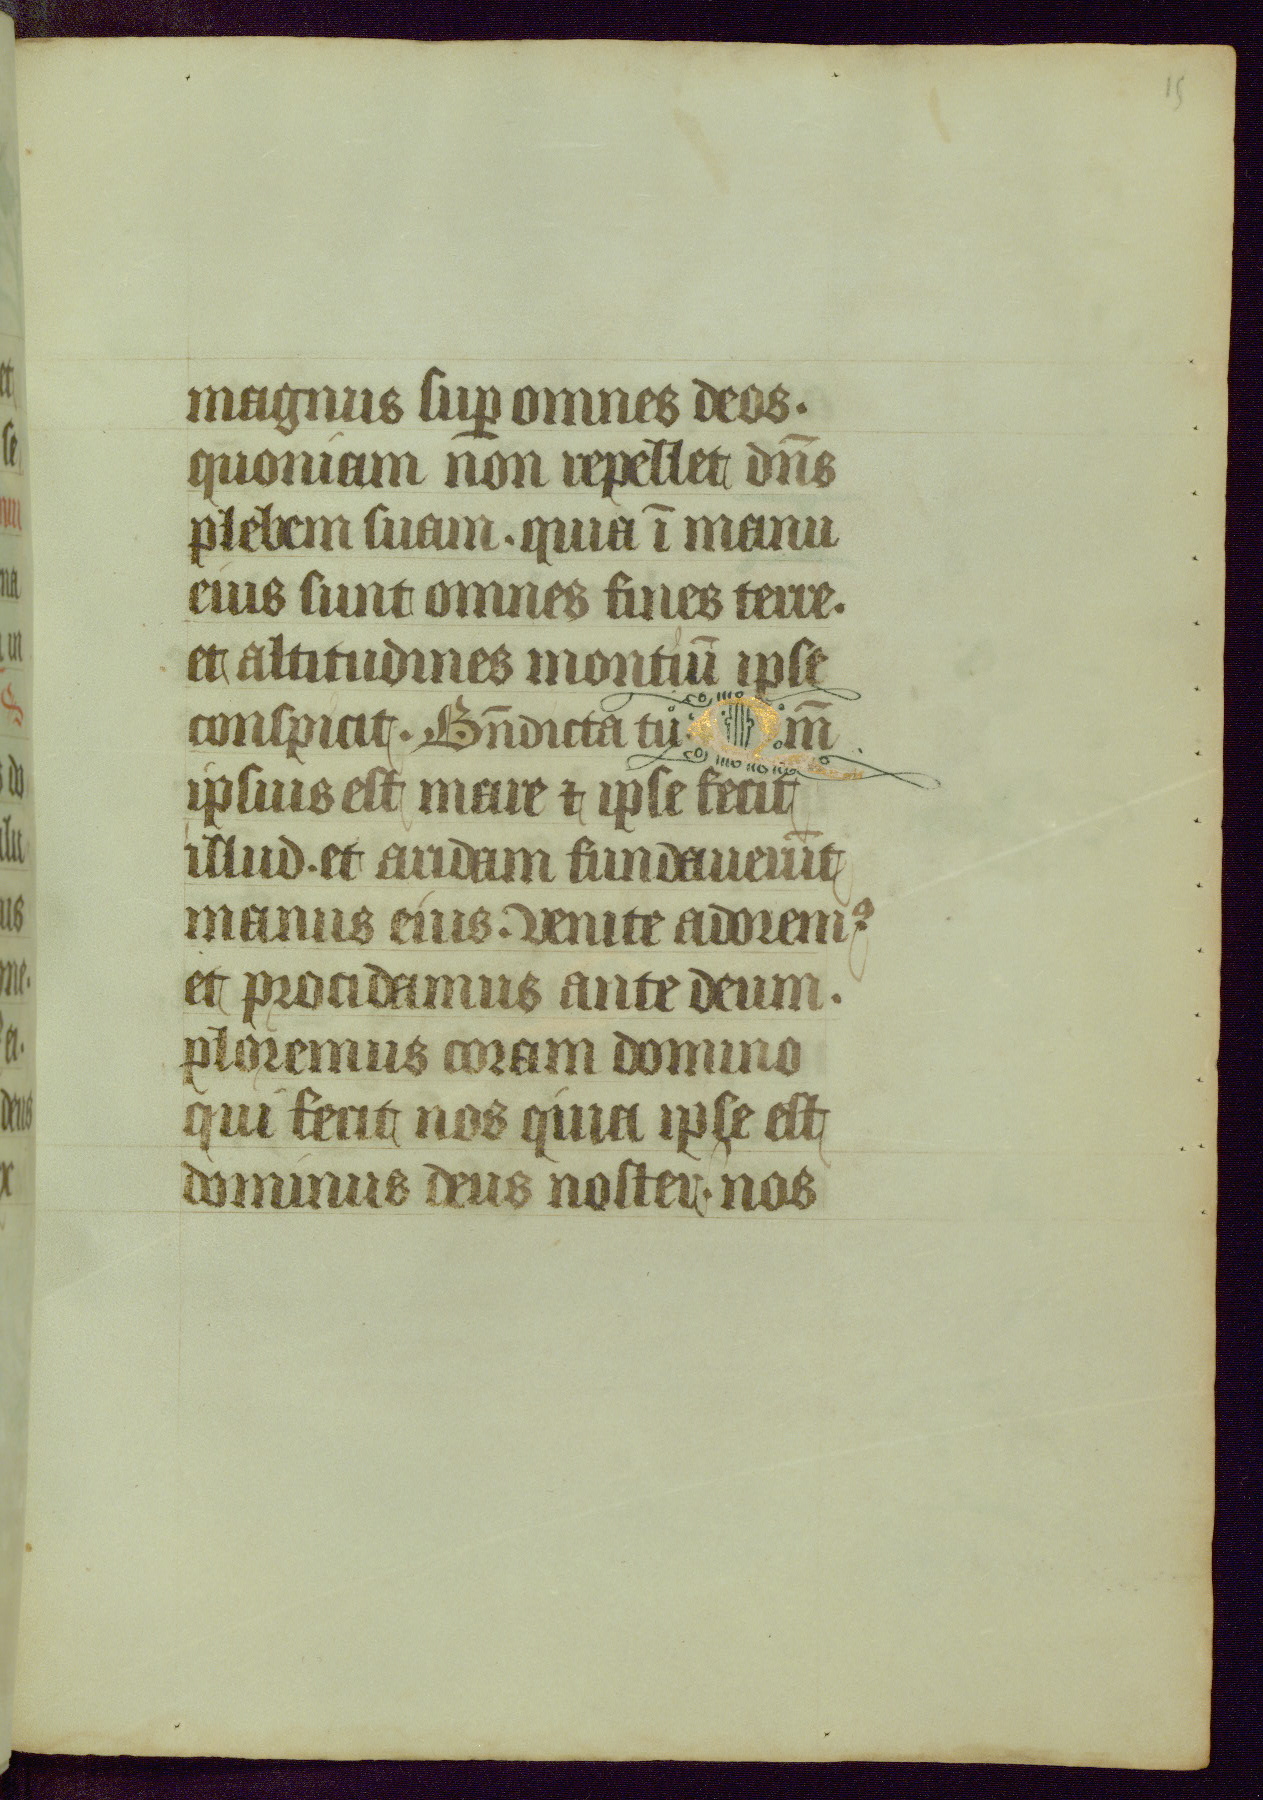 15
magnus sup̲ omnes deos.
quoniam nōn repellet dn̄s
plebem suam. quia ī manu
eius sunt omnes fines terre.
et altitudines montiū ipse
conspicit. Bn̄dicta tu. Qm̄
ipsius est mare ⁊ ipse fecit
illud. et aridam fundauerūt
manus eius. Venite adoremꝰ
et procidamus ante deum.
ploremus coram domino
qui fecit nos quia ipse est
dominus deus noster. nos